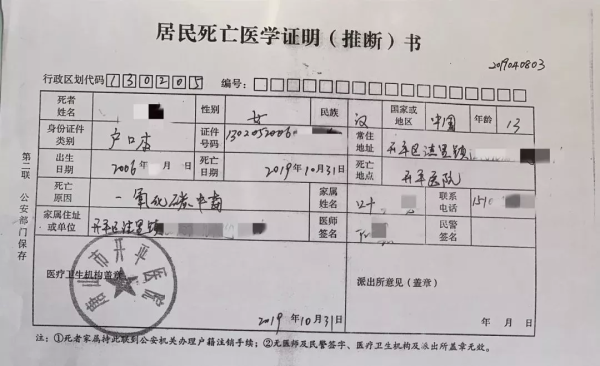 居民死亡医学证明（推断）书
2019040803
行政区划代码 130205 编号：
死者姓名 性别 女 民族 汉 国家或地区 中国 年龄 13
身份证件类别 户口本 证件号码 1302052006 常住地址 开平区洼里镇
出生日期 2006年 月 日 死亡日期 2019年10月31日 死亡地点 开平医院
死亡原因 一氧化碳中毒 家属姓名 叶 联系电话 1510
家属住址或单位 开平区洼里镇 医师签名 民警签名
第二联 公安部门保存
医疗卫生机构盖章
唐山市开平医院
2019年10月31日
派出所意见（盖章）
年 月 日
注：①死者家属持此联到公安机关办理户籍注销手续；②无医师及民警签字、医疗卫生机构及派出所盖章无效。